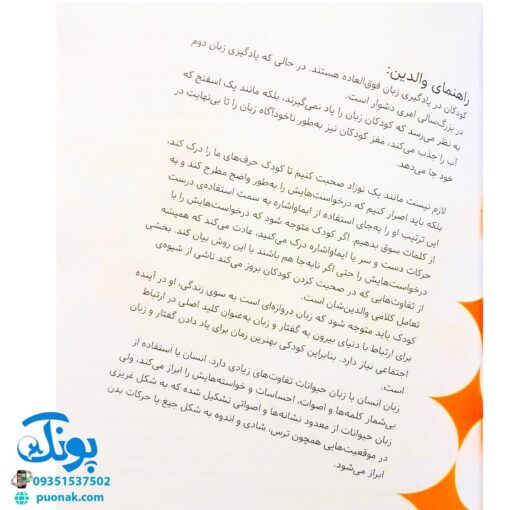 راهنمای والدین:
کودکان در یادگیری زبان فوق‌العاده هستند. در حالی که یادگیری زبان دوم
در بزرگ‌سالی امری دشوار است.
به نظر می‌رسد که کودکان زبان را یاد نمی‌گیرند، بلکه مانند یک اسفنج که
آب را جذب می‌کند، مغز کودکان نیز به‌طور ناخودآگاه زبان را تا بی‌نهایت در
خود جا می‌دهد.
لازم نیست مانند یک نوزاد صحبت کنیم تا کودک حرف‌های ما را درک کند،
بلکه باید اصرار کنیم که درخواست‌هایش را به‌طور واضح مطرح کند و به
این ترتیب او را به‌جای استفاده از ایماواشاره به سمت استفاده‌ی درست
از کلمات سوق بدهیم. اگر کودک متوجه شود که درخواست‌هایش را با
حرکات دست و سر یا ایماواشاره درک می‌کنید، عادت می‌کند که همیشه
درخواست‌هایش را حتی اگر نابه‌جا هم باشند با این روش بیان کند. بخشی
از تفاوت‌هایی که در صحبت کردن کودکان بروز می‌کند ناشی از شیوه‌ی
تعامل کلامی والدین‌شان است.
کودک باید متوجه شود که زبان دروازه‌ای است به سوی زندگی، او در آینده
برای ارتباط با دنیای بیرون به گفتار و زبان به‌عنوان کلید اصلی در ارتباط
اجتماعی نیاز دارد. بنابراین کودکی بهترین زمان برای یاد دادن گفتار و زبان
است.
زبان انسان با زبان حیوانات تفاوت‌های زیادی دارد. انسان با استفاده از
بی‌شمار کلمه‌ها و اصوات، احساسات و خواسته‌هایش را ابراز می‌کند، ولی
زبان حیوانات از معدود نشانه‌ها و اصواتی تشکیل شده که به شکل غریزی
در موقعیت‌هایی همچون ترس، شادی و اندوه به شکل جیغ یا حرکات بدن
ابراز می‌شود.
پونک
09351537502
puonak.com